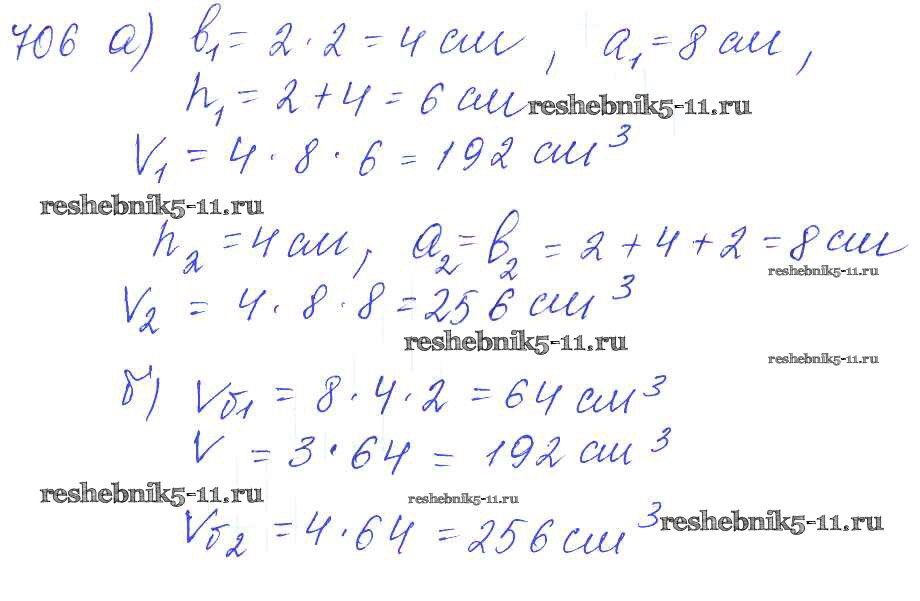 706 а) в₁ = 2 · 2 = 4 см, а₁ = 8 см,
h₁ = 2 + 4 = 6 см
reshebnik5-11.ru
V₁ = 4 · 8 · 6 = 192 см³
reshebnik5-11.ru
h₂ = 4 см, а₂ = в₂ = 2 + 4 + 2 = 8 см
reshebnik5-11.ru
V₂ = 4 · 8 · 8 = 256 см³
reshebnik5-11.ru
reshebnik5-11.ru
б) Vб₁ = 8 · 4 · 2 = 64 см³
V = 3 · 64 = 192 см³
reshebnik5-11.ru
reshebnik5-11.ru
Vб₂ = 4 · 64 = 256 см³
reshebnik5-11.ru